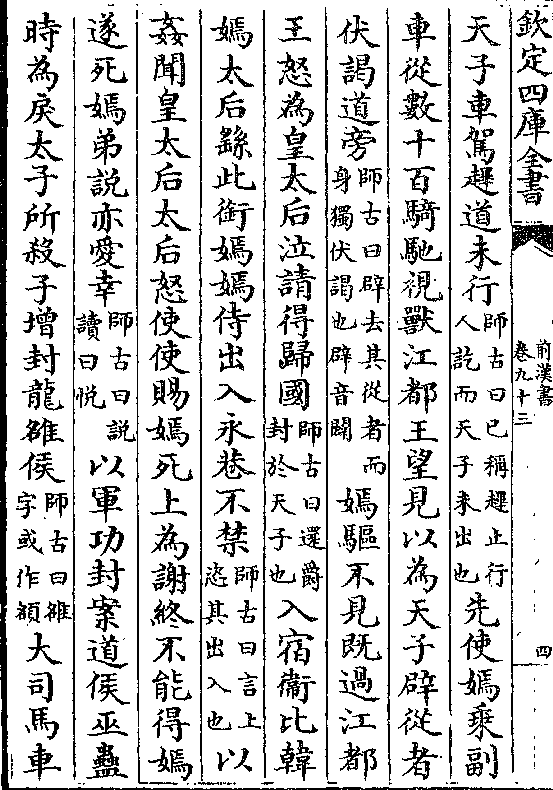 欽定四庫全書
前漢書
卷九十三
四
天子車駕趕道未行師古曰已稱趕止行人訖而天子未出也先使嫣乗副
車從數十百騎馳視獸江都王望見以為天子辟從者
伏謁道旁師古曰辟去其從者而身獨伏謁也辟音闢嫣驅不見既過江都
王怒為皇太后泣請得歸國師古曰還爵封於天子也入宿衛比韓
嫣太后繇此銜嫣嫣侍出入永巷不禁師古曰言上恣其出入也以
姦聞皇太后太后怒使使賜嫣死上為謝終不能得嫣
遂死嫣弟說亦愛幸師古曰說讀曰悅以軍功封案道侯巫蠱
時為戾太子所殺子增封龍雒侯師古曰雒字或作頟大司馬車